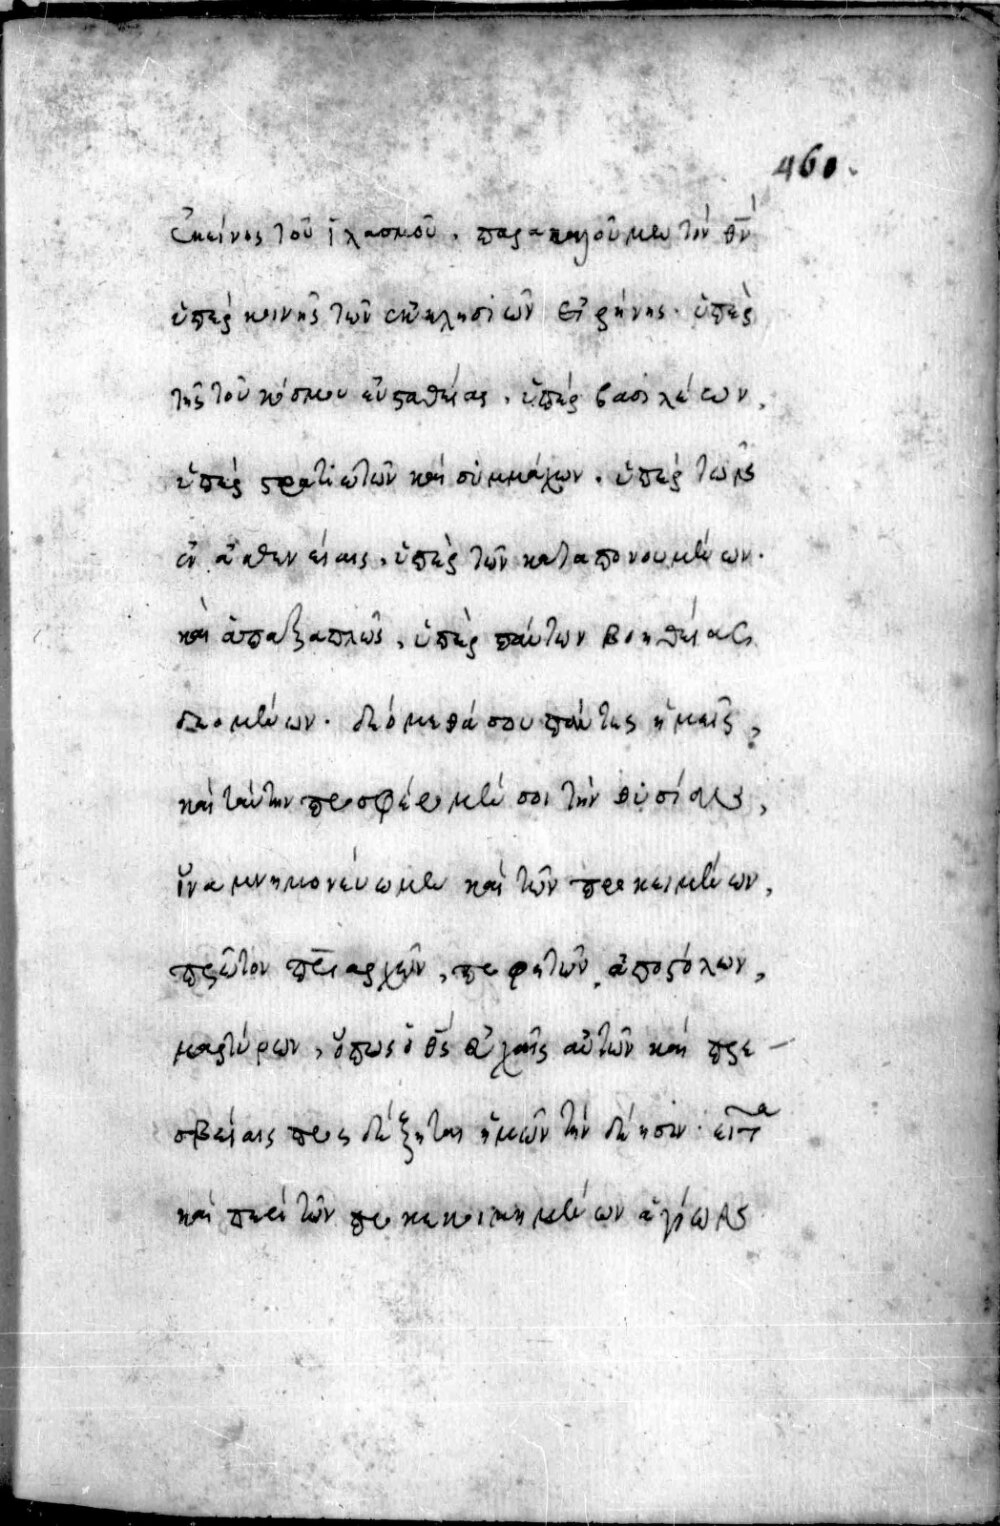 460.
ἐκείνης τοῦ ἱλασμοῦ. παρακαλοῦμεν τὸν θν̄
ὑπὲρ κοινῆς τῶν ἐκκλησιῶν εἰρήνης. ὑπὲρ
τῆς τοῦ κόσμου εὐσταθείας, ὑπὲρ βασιλέων,
ὑπὲρ στρατιωτῶν καὶ συμμάχων. ὑπὲρ τῶν
ἐν ἀσθενείαις, ὑπὲρ τῶν καταπονουμένων.
καὶ ἁπαξαπλῶς, ὑπὲρ πάντων βοηθείας
δεομένων. δεόμεθά σου πάντες ἡμεῖς,
καὶ ταύτην προσφέρομέν σοι τὴν θυσίαν,
ἵνα μνημονεύωμεν καὶ τῶν προκειμένων,
πρῶτον πρ̄ιαρχῶν, προφητῶν, ἀποστόλων,
μαρτύρων, ὅπως ὁ θς̄ εὐχαῖς αὐτῶν καὶ πρε-
σβείαις προσδέξηται ἡμῶν τὴν δέησιν. εἶτα
καὶ περὶ τῶν προκεκοιμημένων ἁγίων